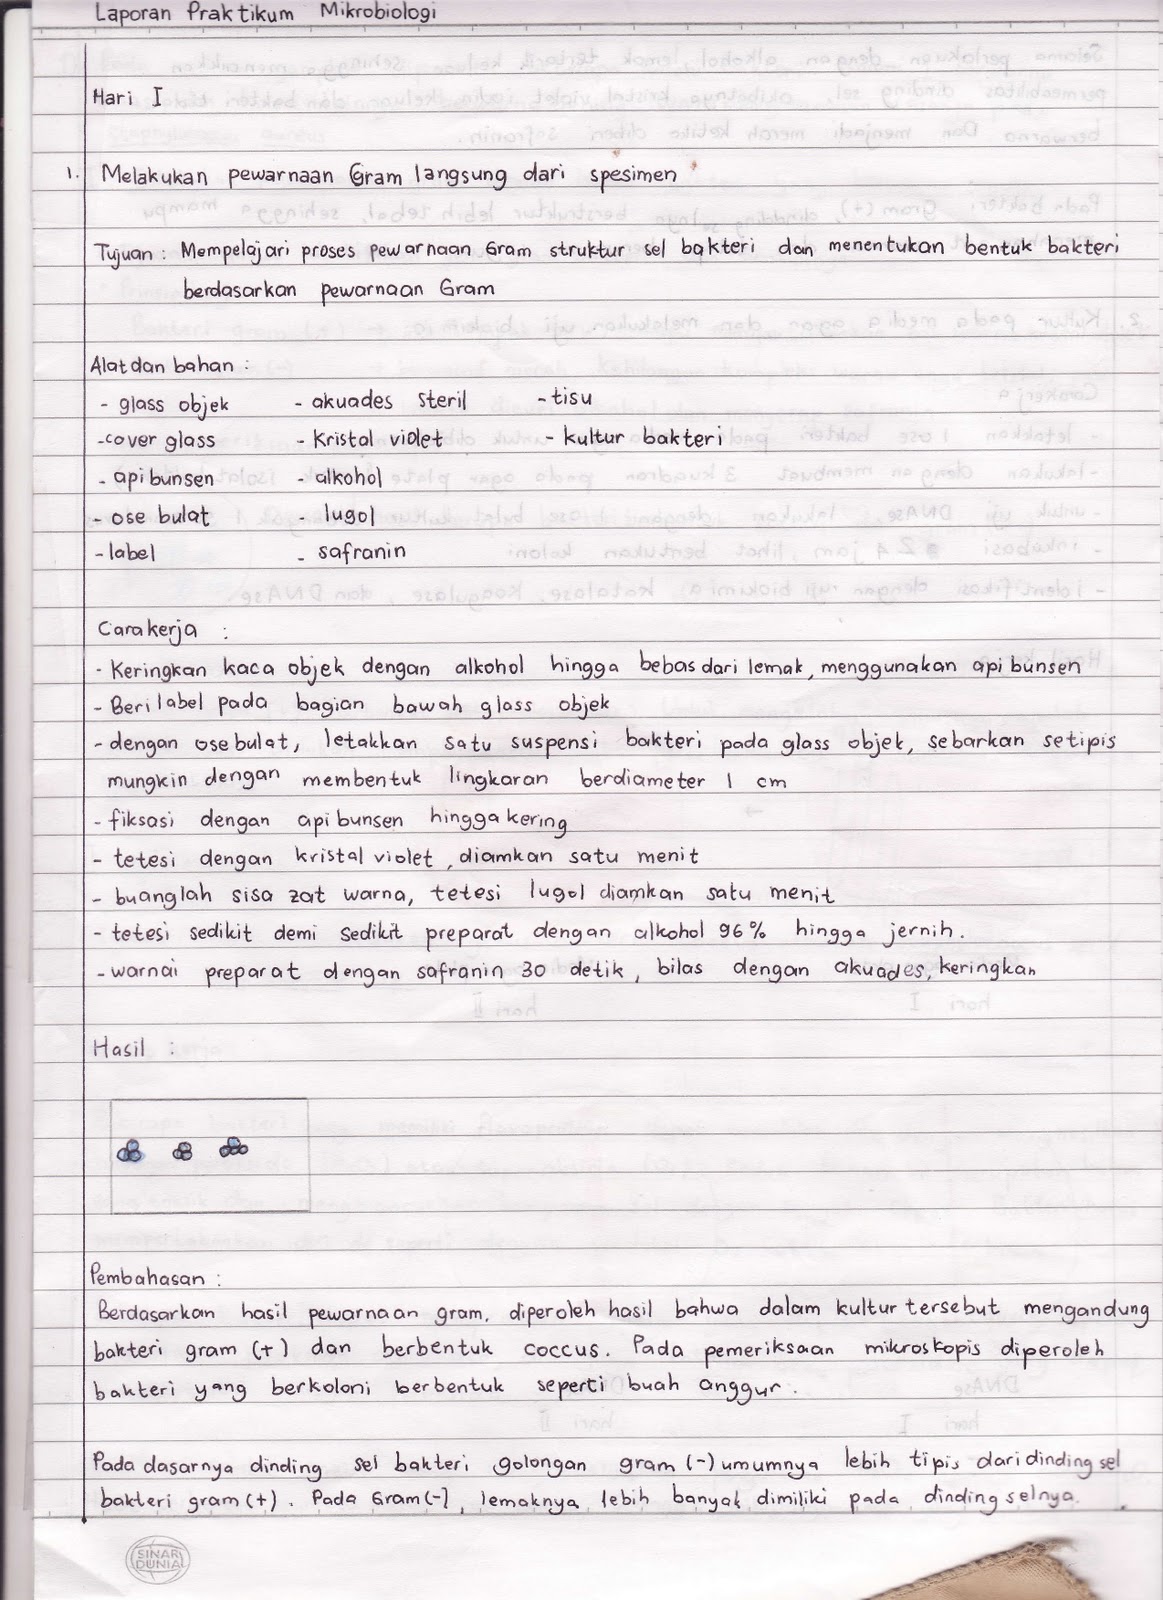 Laporan Praktikum Mikrobiologi
Hari I
1. Melakukan pewarnaan Gram langsung dari spesimen
Tujuan : Mempelajari proses pewarnaan Gram struktur sel bakteri dan menentukan bentuk bakteri
berdasarkan pewarnaan Gram
Alat dan bahan :
- glass objek - akuades steril - tisu
- cover glass - Kristal violet - kultur bakteri
- api bunsen - alkohol
- ose bulat - lugol
- label - safranin
Cara kerja :
- Keringkan kaca objek dengan alkohol hingga bebas dari lemak, menggunakan api bunsen
- Beri label pada bagian bawah glass objek
- dengan ose bulat, letakkan satu suspensi bakteri pada glass objek, sebarkan setipis
mungkin dengan membentuk lingkaran berdiameter 1 cm
- fiksasi dengan api bunsen hingga kering
- tetesi dengan kristal violet, diamkan satu menit
- buanglah sisa zat warna, tetesi lugol diamkan satu menit
- tetesi sedikit demi sedikit preparat dengan alkohol 96% hingga jernih.
- warnai preparat dengan safranin 30 detik, bilas dengan akuades, keringkan
Hasil :
Pembahasan :
Berdasarkan hasil pewarnaan gram, diperoleh hasil bahwa dalam kultur tersebut mengandung
bakteri gram (+) dan berbentuk coccus. Pada pemeriksaan mikroskopis diperoleh
bakteri yang berkoloni berbentuk seperti buah anggur.
Pada dasarnya dinding sel bakteri golongan gram (-) umumnya lebih tipis dari dinding sel
bakteri gram (+). Pada Gram (-), lemaknya lebih banyak dimiliki pada dinding selnya.
SINAR
DUNIA